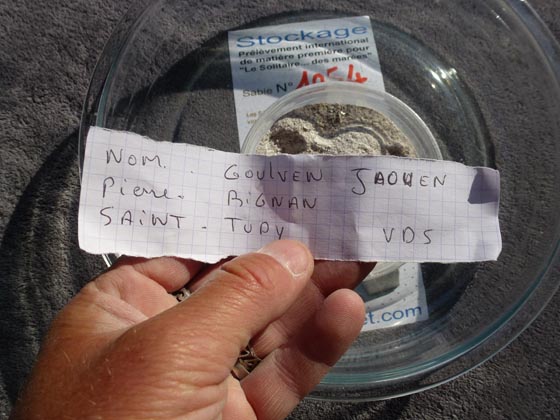 Stockage
Prélèvement international
de matière première pour
"Le Solitaire... des marées"
Sable N° 1054
NOM. GOULVEN JAOUEN
Pierre. BIGNAN
SAINT. TUDY VDS
et.com